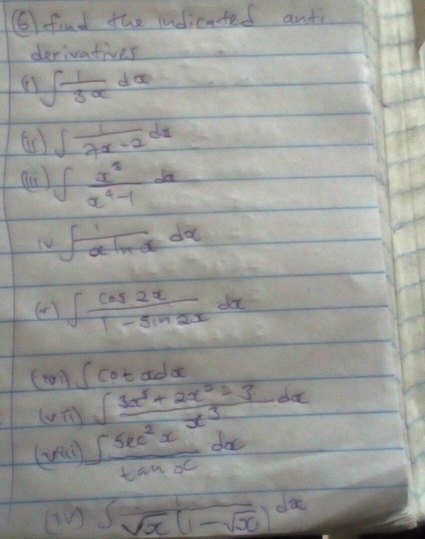 (6) find the indicated anti
derivatives
(i) ∫ 1/3x dx
(ii) ∫ 1/(7x-2) dx
(iii) ∫ x³/(x⁴-1) dx
iv ∫ 1/(x ln x) dx
(v) ∫ cos 2x/(1-sin 2x) dx
(vi) ∫ cot x dx
(vii) ∫ (3x⁵ + 2x² - 3)/x³ dx
(viii) ∫ sec² x/tan x dx
(iv) ∫ 1/(√x (1-√x)) dx